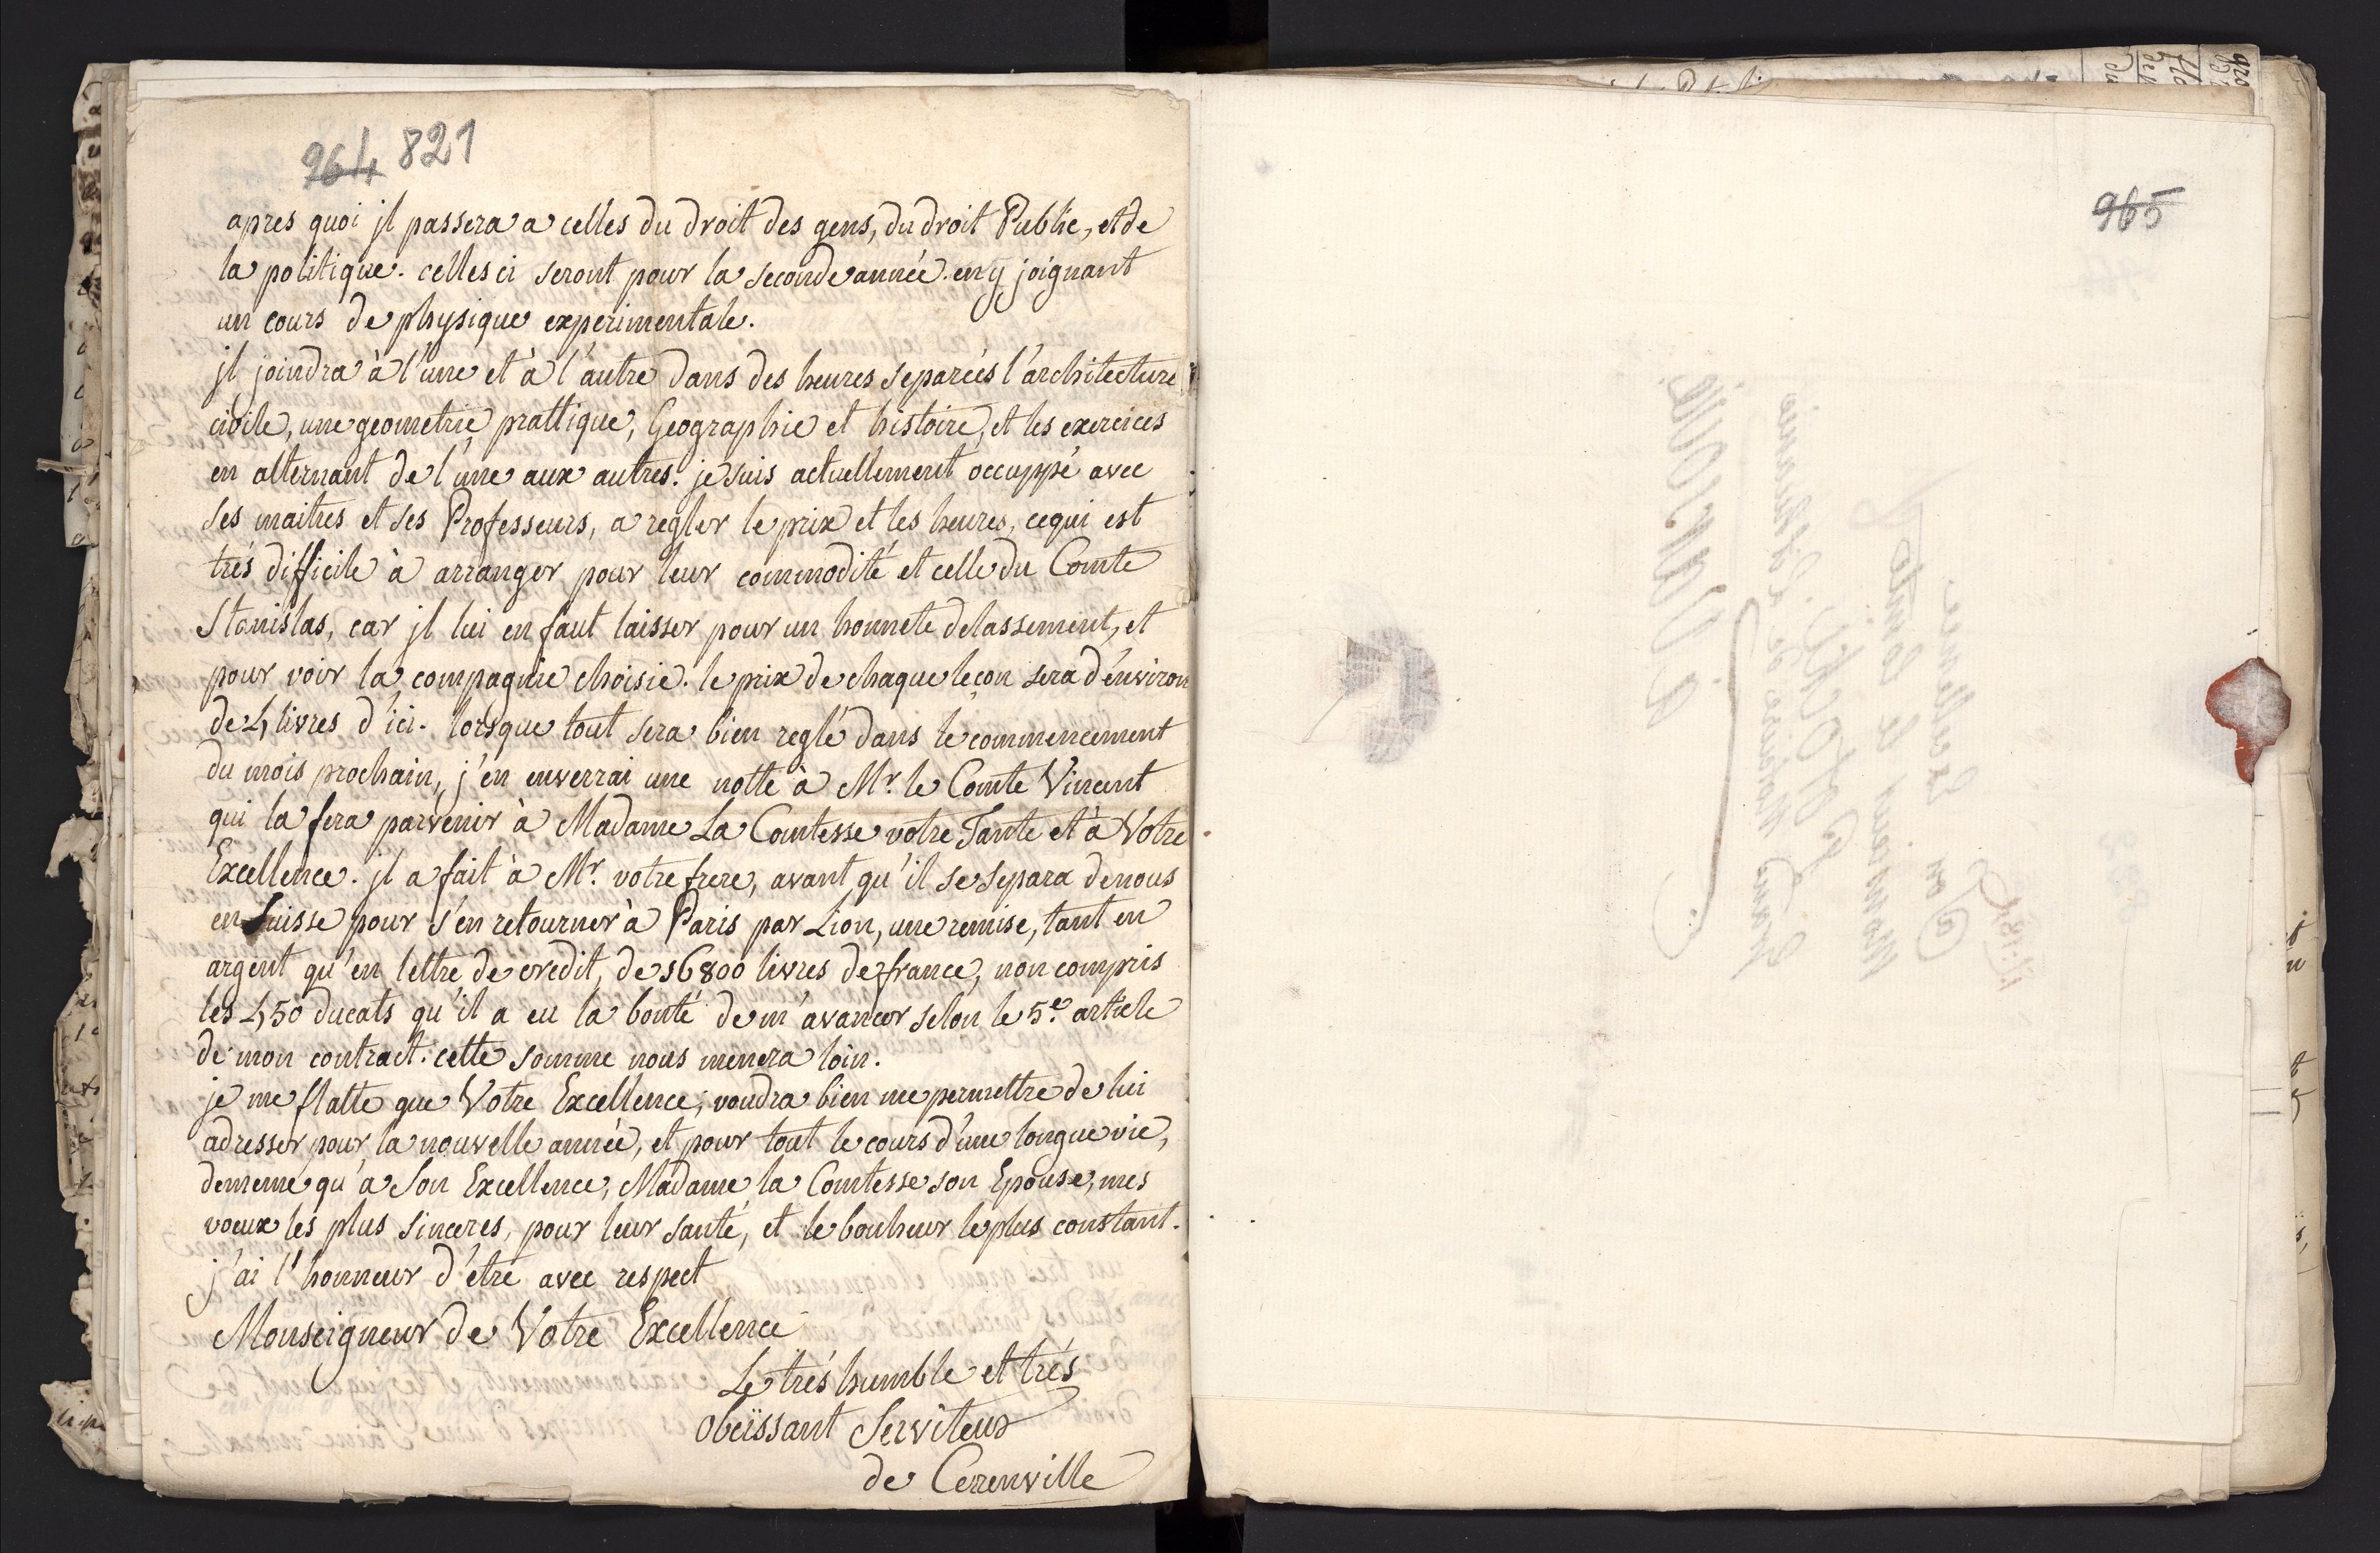 264 821
apres quoi jl passera a celles du droit des gens, du droit Public, et de
la politique. celles ci seront pour la seconde année. en y joignant
un cours de physique experimentale.
jl joindra à l'une et à l'autre dans des heures separées l'architecture
civile, une geometrie prattique, Geographie et histoire, et les exercices
en alternant de l'une aux autres. je suis actuellement occuppé avec
ses maitres et ses Professeurs, a regler le prix et les heures, ce qui est
trés difficile à arranger pour leur commodité et celle du Comte
Stanislas, car jl lui en faut laisser pour un honnete delassement, et
pour voir la compagnie choisie. le prix de chaque lecon sera d'environ
de 4 livres d'ici. lorsque tout sera bien reglé dans le commencement
du mois prochain, j'en enverrai une notte à Mr. le Comte Vincent
qui la fera parvenir à Madame La Comtesse votre Tante et à Vôtre
Excellence. jl a fait à Mr. votre frere, avant qu'il se separa de nous
en Suisse pour s'en retourner à Paris par Lion, une remise, tant en
argent qu'en lettre de credit, de 16800 livres de france, non compris
les 450 ducats qu'il a eu la bonté de m'avancer selon le 5e. article
de mon contract. cette somme nous menera loin.
je me flatte que Votre Excellence, voudra bien me permettre de lui
adresser pour la nouvelle année, et pour tout le cours d'une longue vie,
de meme qu'à Son Excellence, Madame la Comtesse son Epouse, mes
voeux les plus sinceres, pour leur santé, et le bonheur le plus constant.
j'ai l'honneur d'étre avec respect
Monseigneur de Votre Excellence
Le trés humble et trés
obeïssant Serviteur
de Cerenville
965